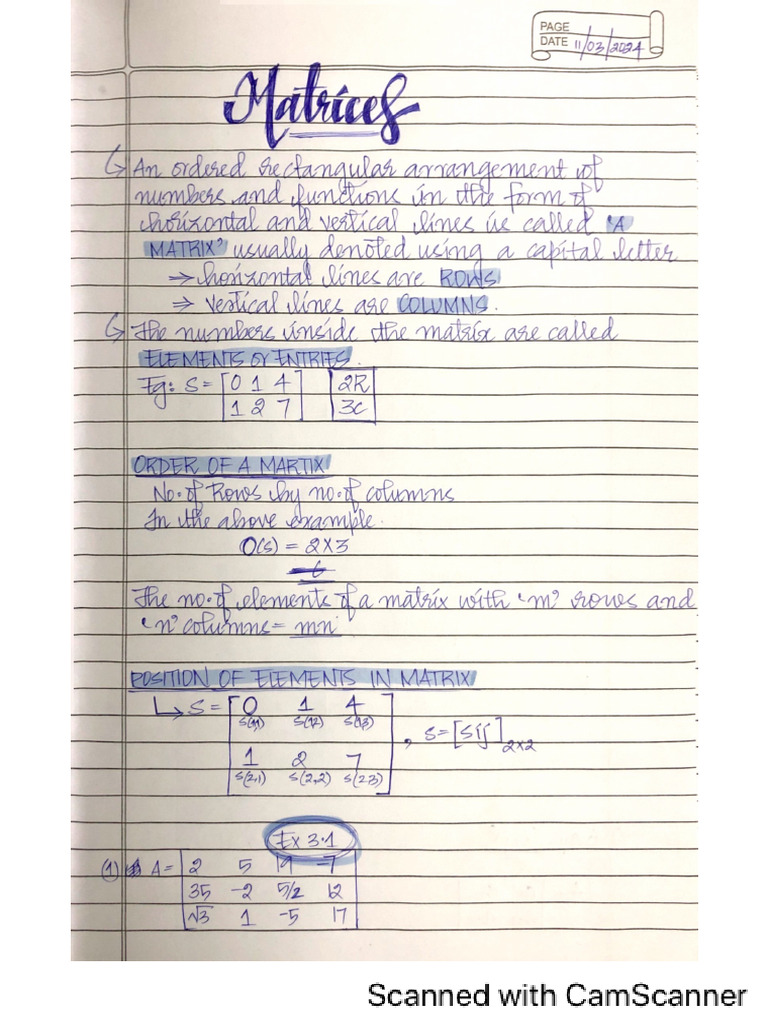 PAGE
DATE 11/03/2024
Matrices
↳ An ordered rectangular arrangement of
numbers and functions in the form of
horizontal and vertical lines is called 'A
MATRIX' usually denoted using a capital letter
⇒ horizontal lines are ROWS
⇒ vertical lines are COLUMNS.
↳ The numbers inside the matrix are called
ELEMENTS or ENTRIES.
Eg: S = [0 1 4 2R
1 2 7] 3C
ORDER OF A MARTIX
No. of Rows by no. of columns
In the above example.
O(S) = 2×3
6
The no. of elements of a matrix with 'm' rows and
'n' columns = mn
POSITION OF ELEMENTS IN MATRIX
↳ S = [0 1 4
S(1,1) S(12) S(1,3)
, S = [Sij]2×2
1 2 7
S(2,1) S(2,2) S(23)]
Ex 3.1
(1) A = [2 5 19 -7
35 -2 5/2 12
√3 1 -5 17]
Scanned with CamScanner